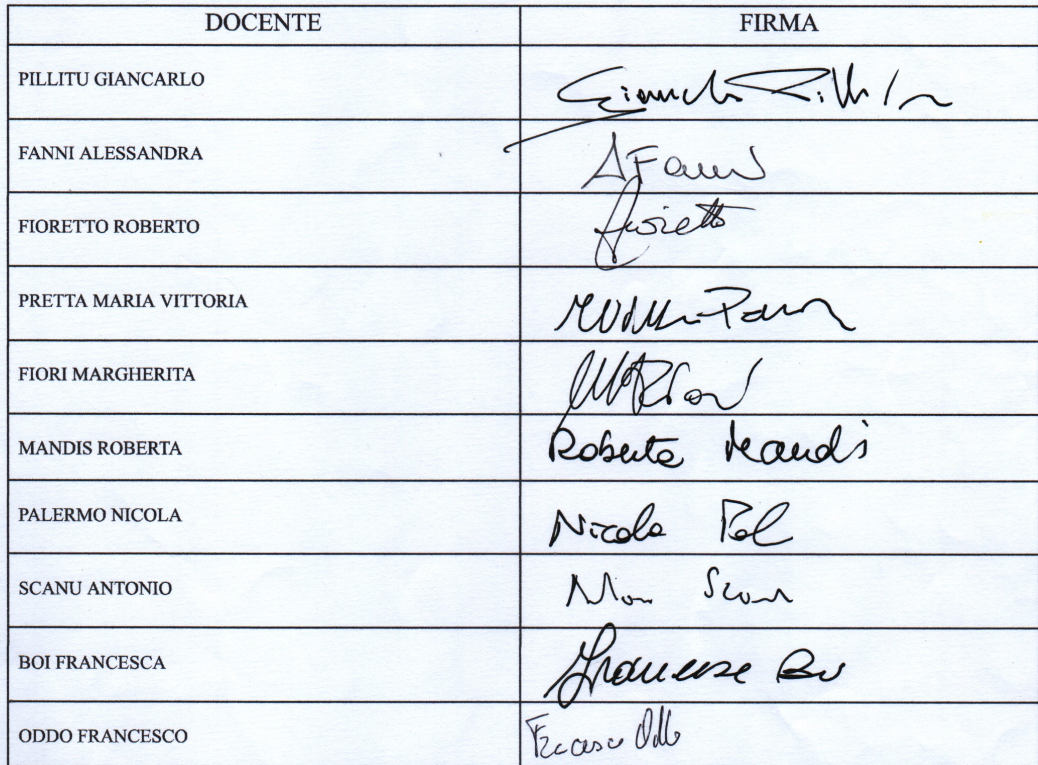 DOCENTE FIRMA
PILLITU GIANCARLO
FANNI ALESSANDRA A Fanni
FIORETTO ROBERTO Fioretto
PRETTA MARIA VITTORIA
FIORI MARGHERITA
MANDIS ROBERTA Roberta Mandis
PALERMO NICOLA Nicola Pal
SCANU ANTONIO
BOI FRANCESCA Francesca Boi
ODDO FRANCESCO Francesco Oddo